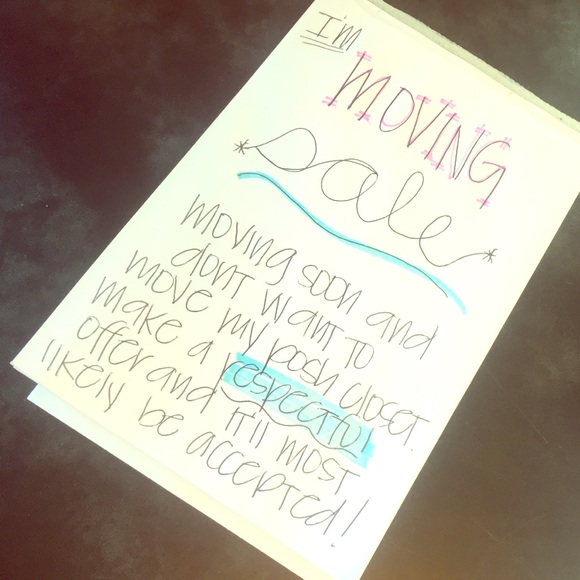 I'm
MOVING
sale
moving soon and
dont want to
move my posh closet.
make a respectful
offer and it'll most
likely be accepted!